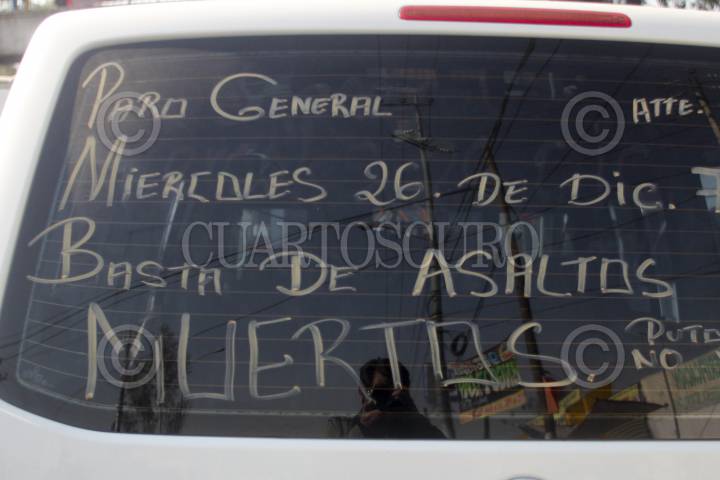 PARO GENERAL ATTE.
MIERCOLES 26. DE DIC. 7
BASTA DE ASALTOS
MUERTOS. PUTO
NO
CUARTOSCURO